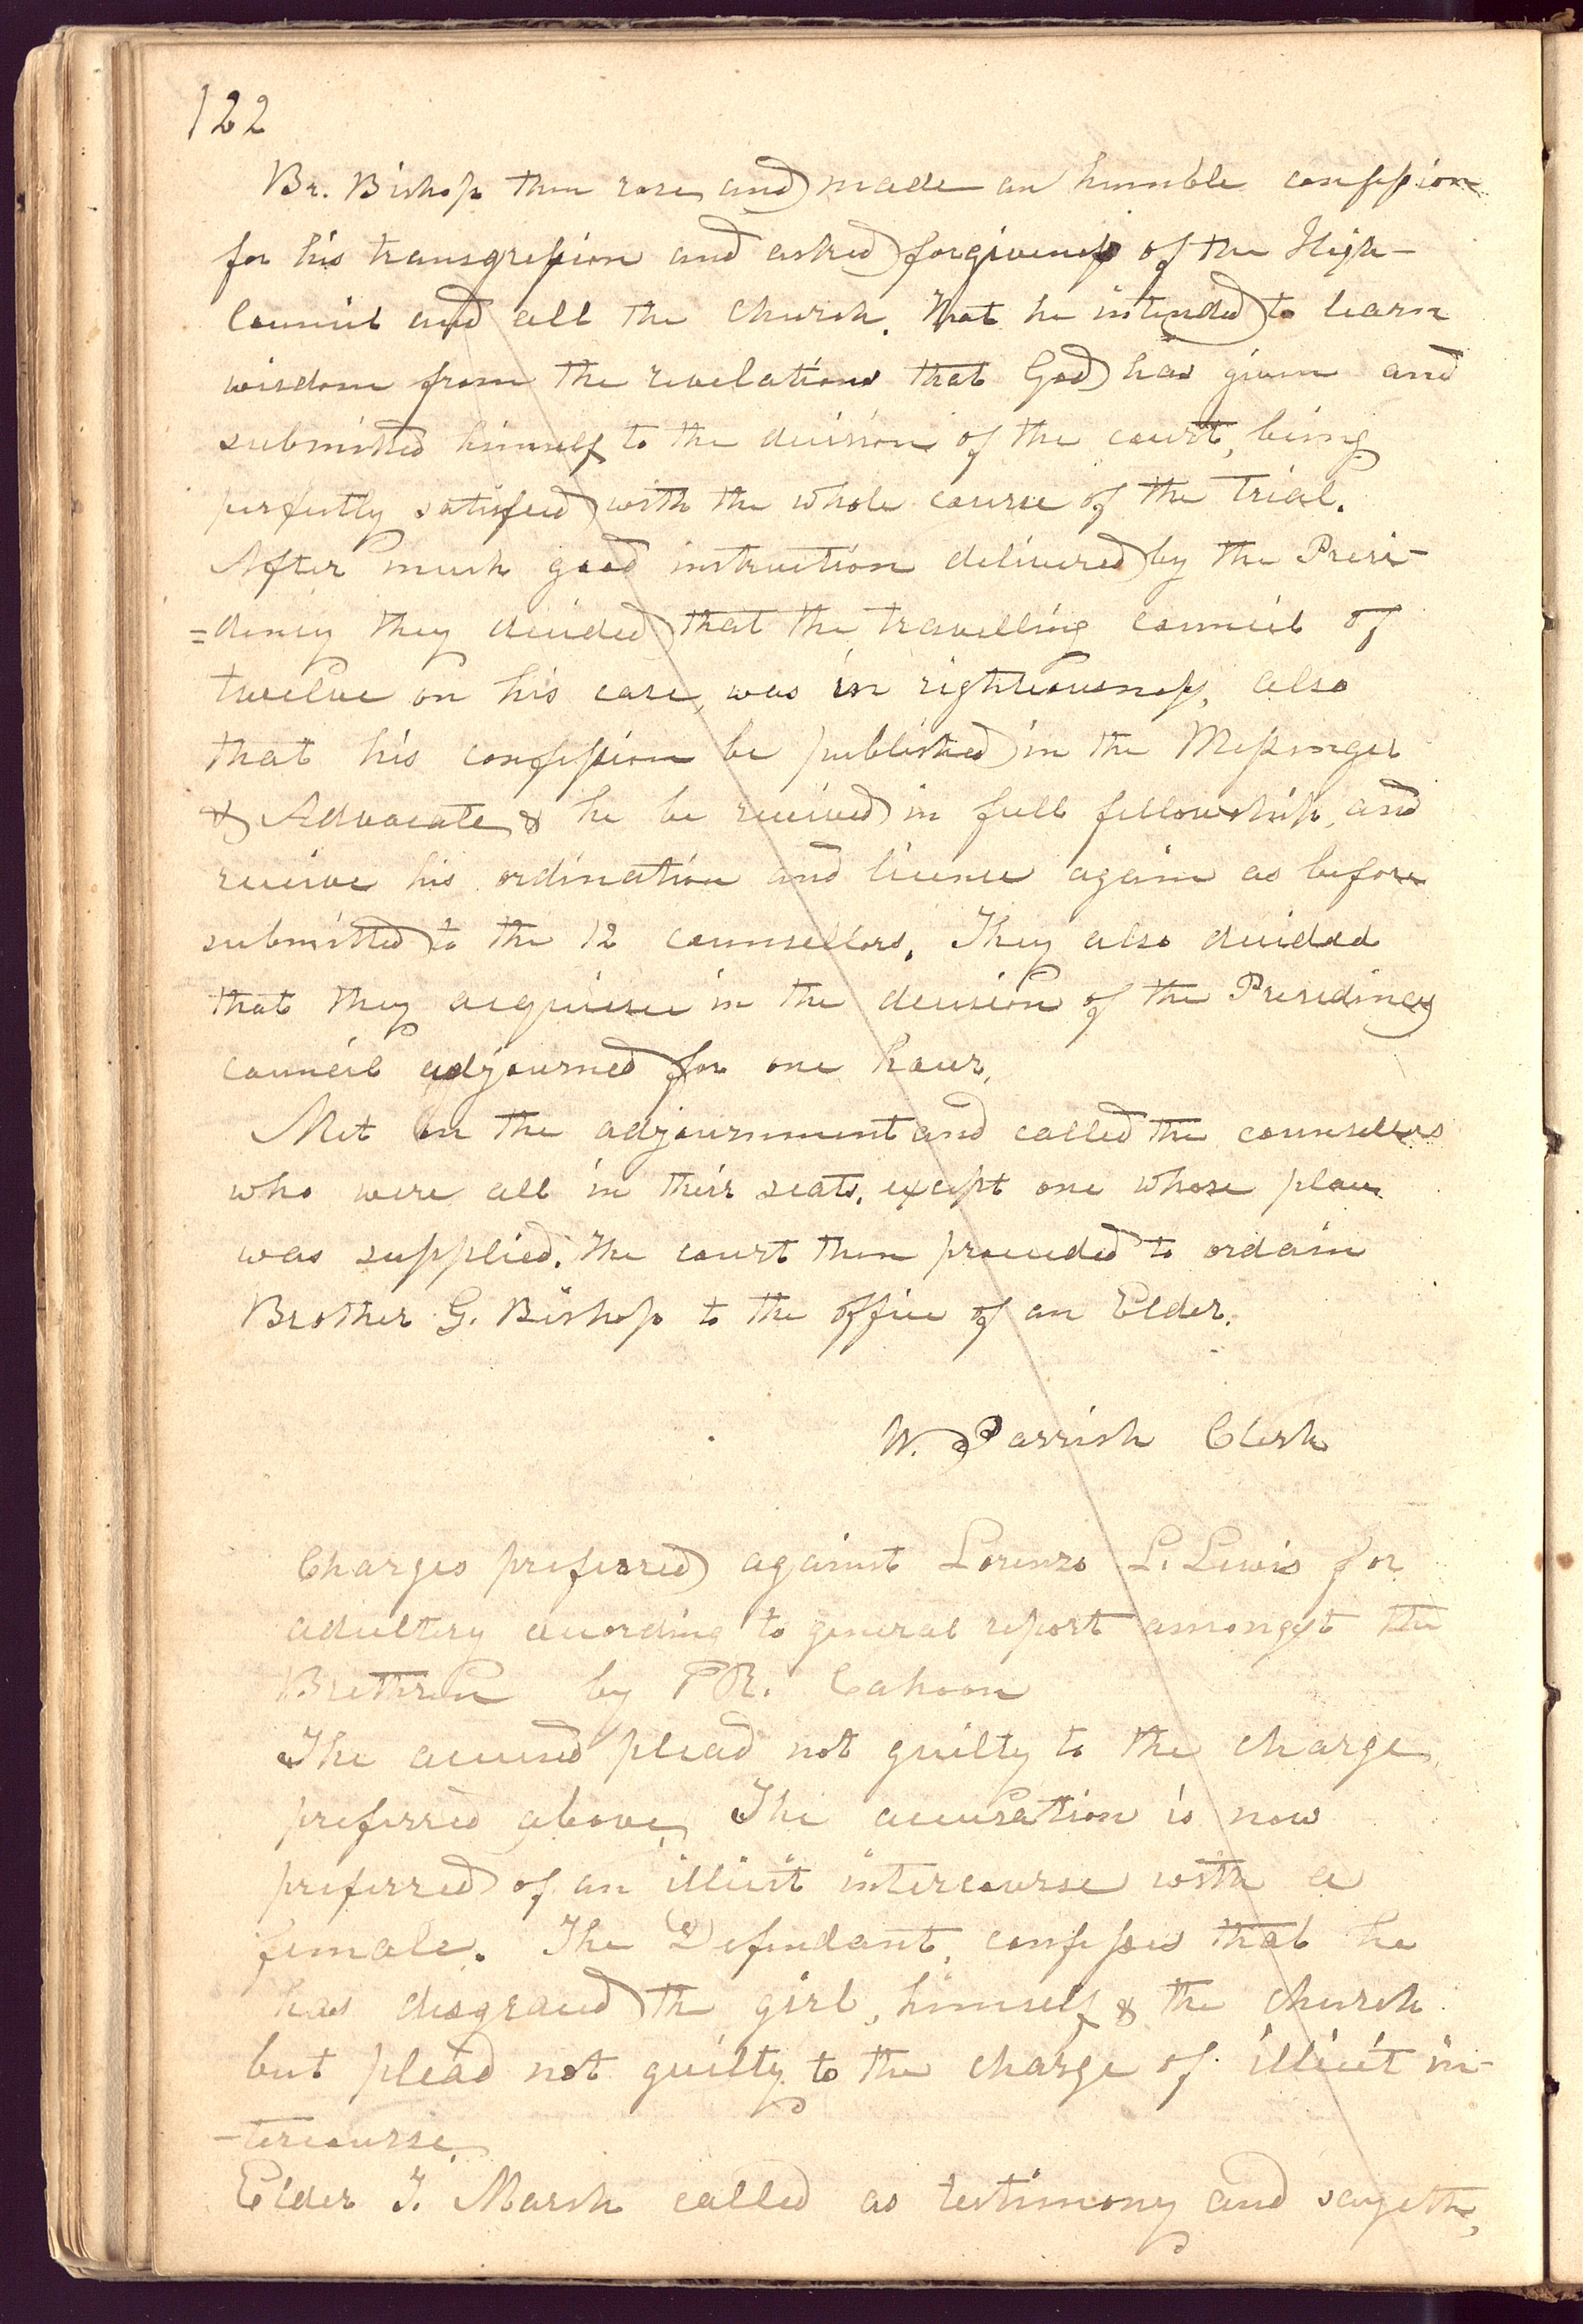 122
Br. Bishop then rose and made an humble confession
for his transgression and asked forgiveness of the High-
Council and all the Church. That he intended to learn
wisdom from the revelations that God has given and
submitted himself to the decision of the court, being
perfectly satisfied with the whole course of the trial.
After much good instruction delivered by the Presi-
=dency they decided that the travelling council of
twelve on his case, was in righteousness, also
that his confession be published in the Messenger
& Advocate & he be received in full fellowship, and
receive his ordination and licence again as before
submitted to the 12 counsellors. They also decided
that they acquiesce in the decision of the Presidency
council adjourned for one hour.
Met on the adjournment and called the counsellers
who were all in their seats, except one whose place
was supplied. The court then proceeded to ordain
Brother G. Bishop to the office of an Elder.
W. Parrish Clerk
Charges preferred against Lorenzo L. Lewis for
adultery according to general report amongst the
Brethren by P R. Cahoon
The accused plead not guilty to the charge
preferred above, The accusation is now
preferred of an illicit intercourse with a
female. The Defendant, confesses that he
has disgraced the girl, himself & the church
but plead not guilty to the charge of illicit in-
-tercourse
Elder T. Marsh called as testimony and sayeth,